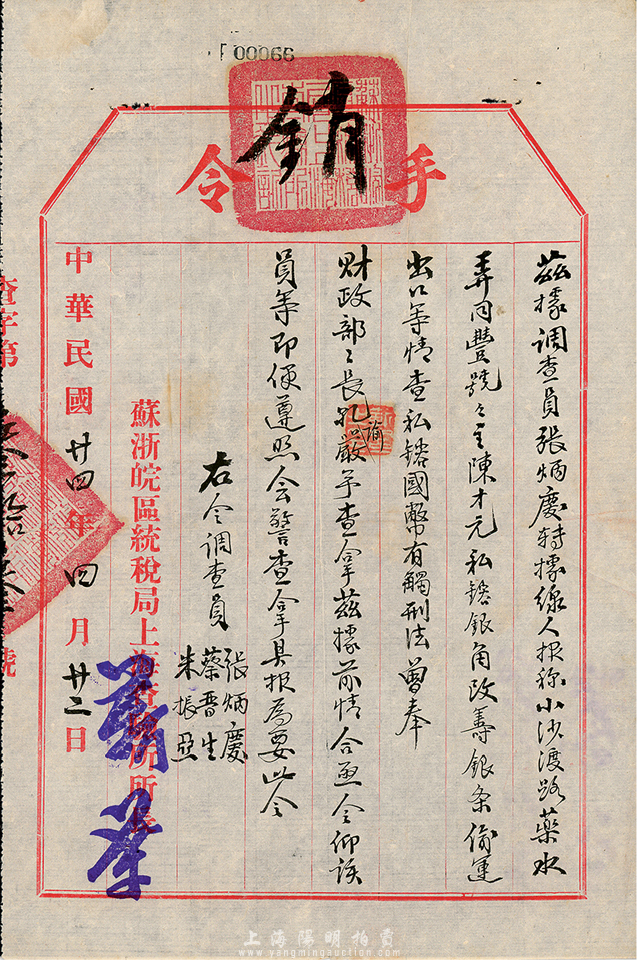 00066
手令
銷
茲據調查員張炳慶轉據線人報称小沙渡路藥水
弄同豐號々主陳才元私鎔銀角改籌銀条偷運
出口等情查私鎔國幣有觸刑法曾奉
財政部々長孔諭嚴予查拿茲據前情合亟令仰該
員等即便遵照会警查拿具报為要此令
右令調查員
張炳慶
蔡晋生
朱振亞
蘇浙皖區統稅局上海查驗所所長
中華民國廿四年四月廿二日
查字第
號
上海陽明拍賣
www.yangmingauction.com